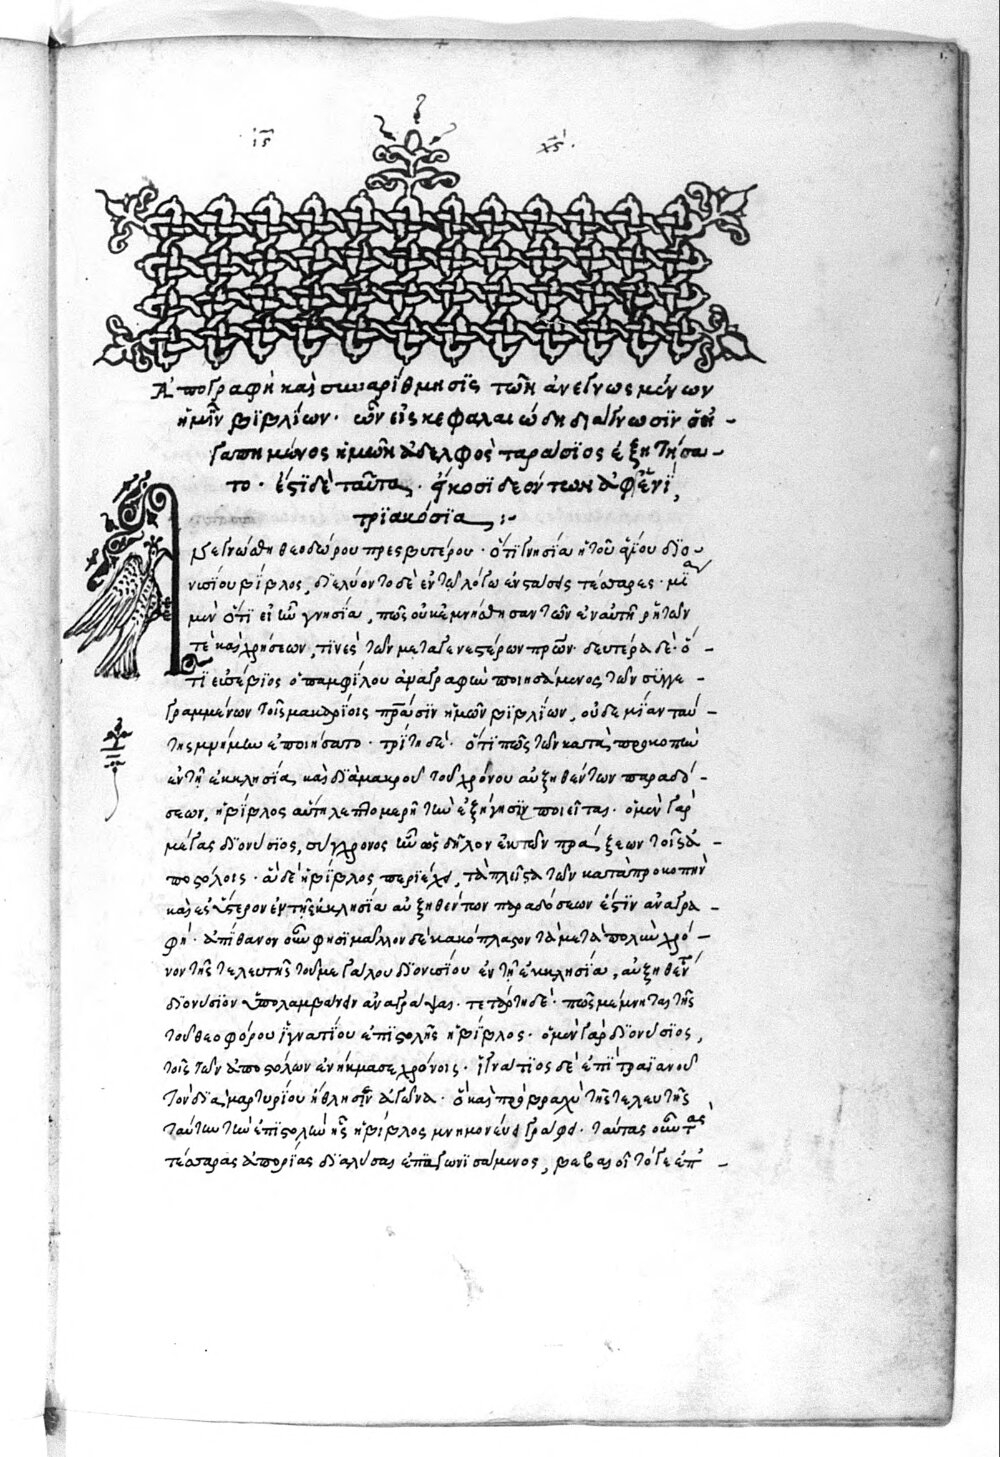 ις χς
Ἀπογραφὴ καὶ συναρίθμησις τῶν ἀνεγνωσμένων
ἡμῖν βιβλίων· ὧν εἰς κεφαλαιώδη διάγνωσιν ὁ ἠ-
γαπημένος ἡμῶν ἀδελφὸς ταράσιος ἐξῃτήσα-
το· ἔστι δὲ ταῦτα· εἴκοσι δεόντων ἐφ' ἑνὶ,
τριακόσια :-
Ἀνεγνώσθη θεοδώρου πρεσβυτέρου· ὅτι γνησία ἡ τοῦ ἁγίου διο-
νυσίου βίβλος, διελύοντο δὲ ἐν τῷ λόγῳ ἐνστάσεις τέσσαρες· μία
μὲν ὅτι εἰ ἦν γνησία, πῶς οὐκ ἐμνήσθησαν τῶν ἐν αὐτῇ ῥητῶν
τὲ καὶ χρήσεων, τινὲς τῶν μεταγενεστέρων πρων· δευτέρα δέ· ὅ-
τι εὐσέβιος ὁ παμφίλου ἀναγραφὴν ποιησάμενος τῶν συγγε-
γραμμένων τοῖς μακαρίοις πράσιν ἡμῶν βιβλίων, οὐδεμίαν ταύ-
της μνήμην ἐποιήσατο· τρίτη δέ· ὅτι πῶς τῶν κατὰ προκοπὴν
ἐν τῇ ἐκκλησία καὶ διὰ μακροῦ τοῦ χρόνου αὐξηθέντων παραδό-
σεων, ἡ βίβλος αὕτη λεπτομερῆ τὴν ἐξήγησιν ποιεῖται· ὁ μὲν γὰρ
μέγας διονύσιος, σύγχρονος ἦν ὡς δῆλον ἐκ τῶν πράξεων τοῖς ἀ-
ποστόλοις· ἃ δὲ ἡ βίβλος περιέχει, τὰ πλεῖστα τῶν κατὰ προκοπὴν
καὶ ἐς ὕστερον ἐν τῇ ἐκκλησία αὐξηθέντων παραδόσεων ἐστὶν ἀναγρα-
φή· ἀπίθανον οὖν φησὶ μᾶλλον δὲ κακόπλαστον τὰ μετὰ πολὺν χρό-
νον τῆς τελευτῆς τοῦ μεγάλου διονυσίου ἐν τῇ ἐκκλησία, αὐξηθέντα
διονύσιον ὑπολαμβάνειν ἀναγράψαι· τετάρτη δέ· πῶς μέμνηται τῆς
τοῦ θεοφόρου ἰγνατίου ἐπιστολῆς ἡ βίβλος· ὁ μὲν γὰρ διονύσιος,
τοῖς τῶν ἀποστόλων ἐνήκμασε χρόνοις· ἰγνάτιος δὲ ἐπὶ τραϊανοῦ
τὸν διὰ μαρτυρίου ἤθλησεν ἀγῶνα· ὃς καὶ πρὸ βραχὺ τῆς τελευτῆς
ταύτην τὴν ἐπιστολὴν ἧς ἡ βίβλος μνημονεύει γράφει· ταύτας οὖν τὰς
τέσσαρας ἀπορίας διαλύσας ἐπαγωνισάμενος, βεβαιοῖ τό γε ἐπ-